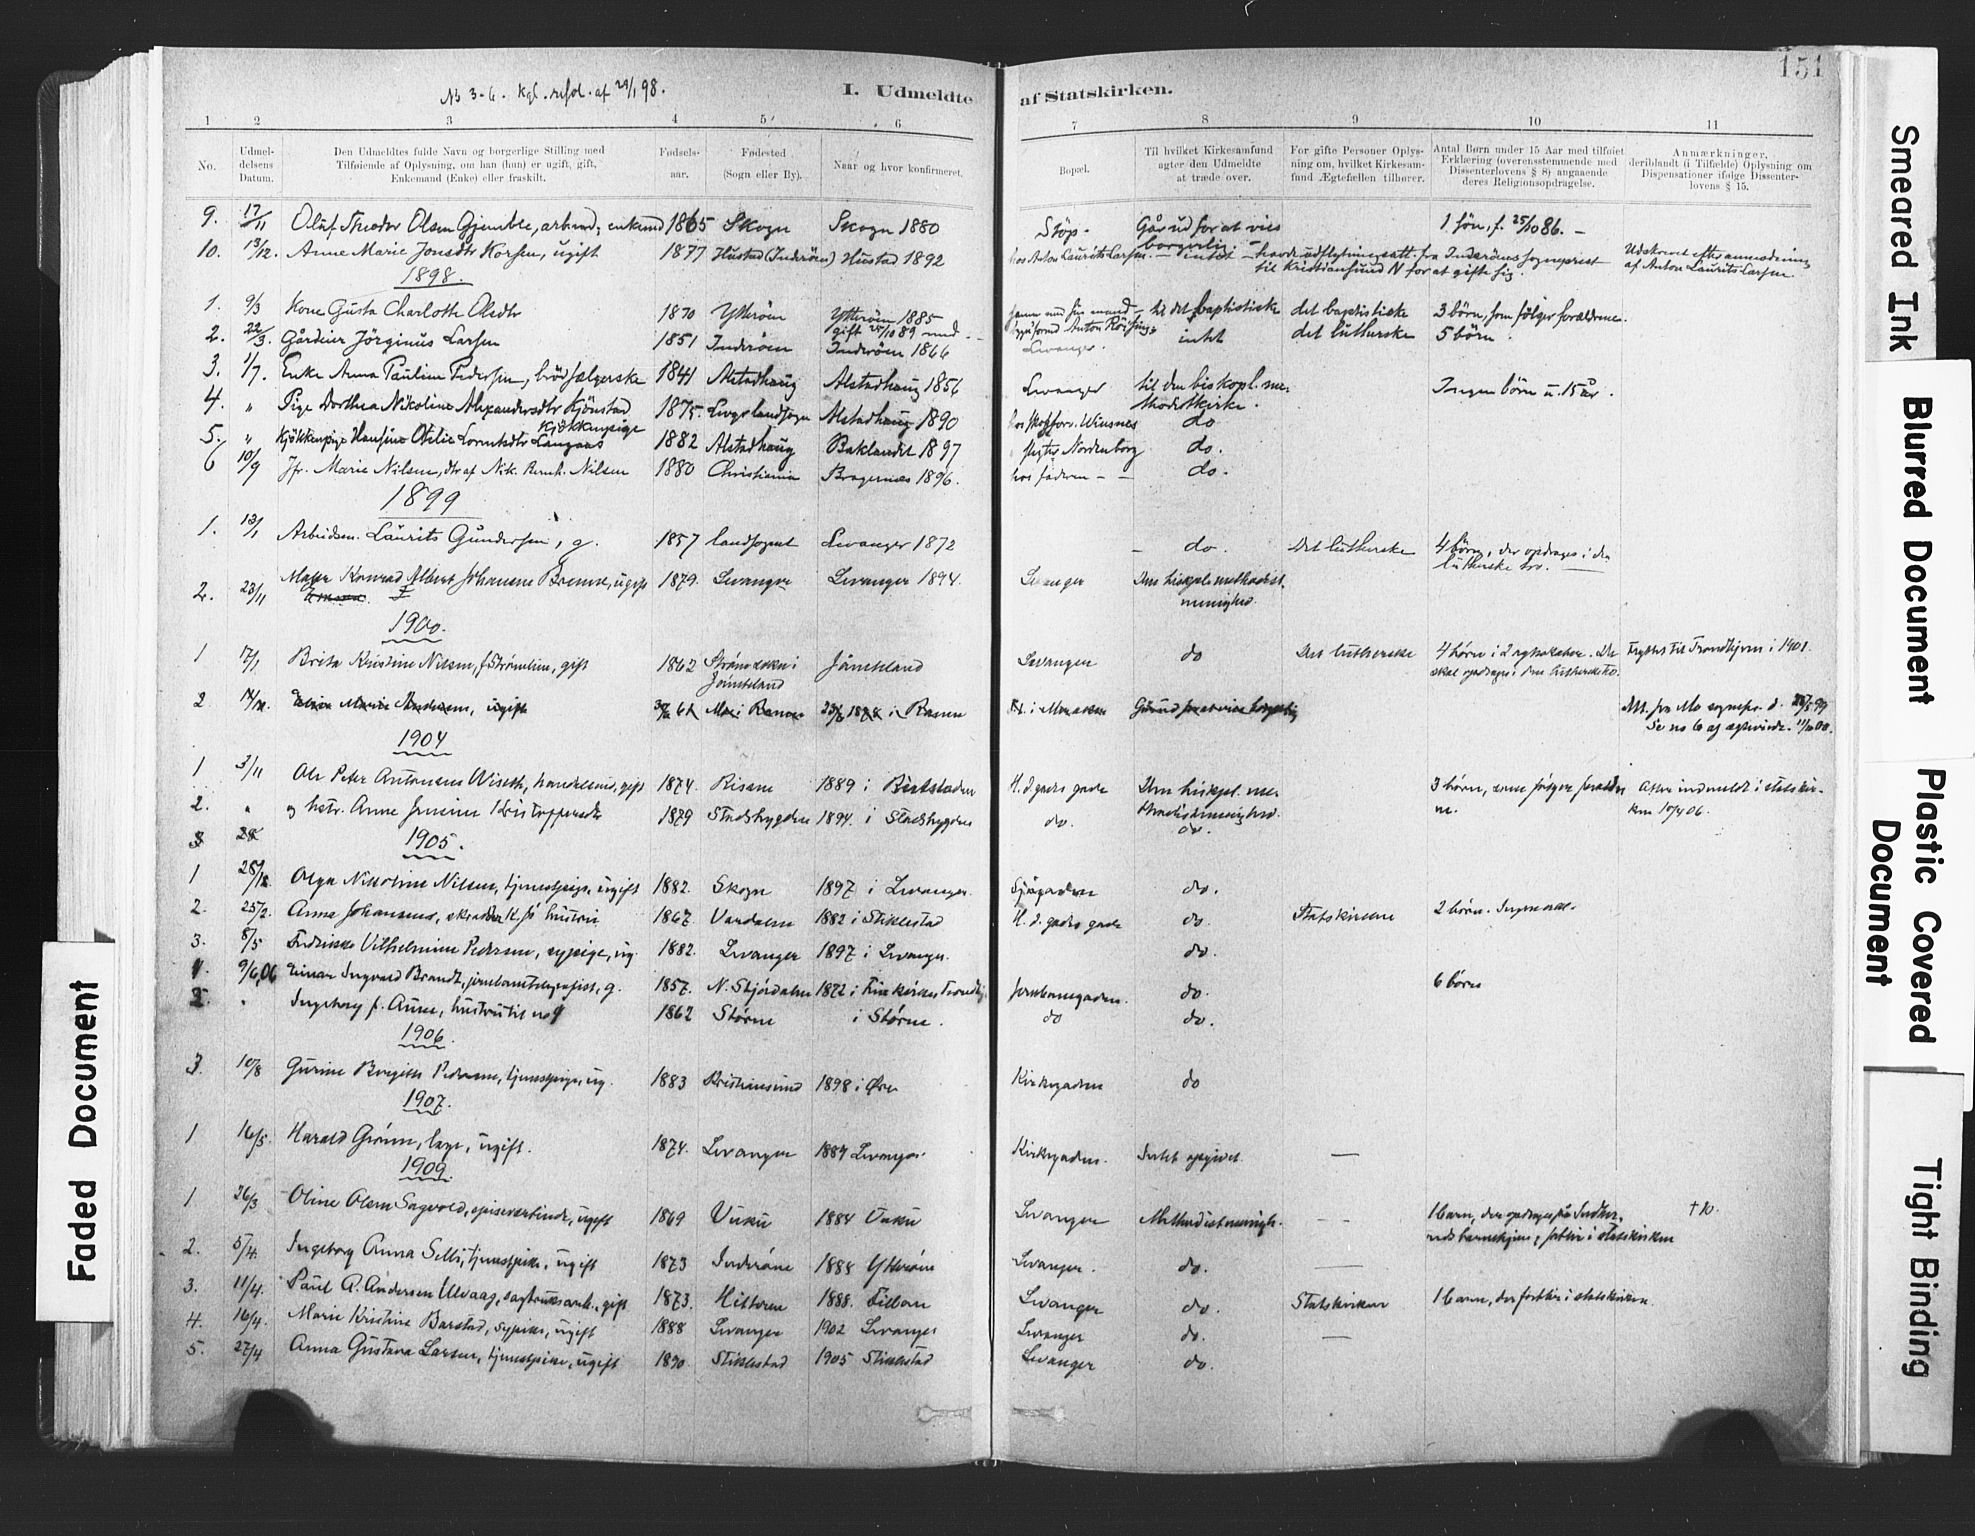 151
No 3-6. kgl. resol. af 29/1 98.
I. Udmeldte af Statskirken.
1 2 3 4 5 6 7 8 9 10 11
No.
Udmel-
delsens
Datum.
Den Udmeldtes fulde Navn og borgerlige Stilling med
Tilføiende af Oplysning, om han (hun) er ugift, gift,
Enkemand (Enke) eller fraskilt.
Fødsels-
aar.
Fødested
(Sogn eller By).
Naar og hvor konfirmeret.
Bopæl.
Til hvilket Kirkesamfund
agter den Udmeldte
at træde over.
For gifte Personer Oplys-
ning om, hvilket Kirkesam-
fund Ægtefællen tilhører.
Antal Børn under 15 Aar med tilføiet
Erklæring (overensstemmende med
Dissenterlovens § 8) angaaende
deres Religionsopdragelse.
Anmærkninger,
deriblandt (i Tilfælde) Oplysning om
Dispensationer ifølge Dissenter-
lovens § 15.
9. 17/11 Oluf Theodor Olsen Gjemble, arbmd, enkemd 1865 Skogn Skogn 1880 Støp. Går ud for at vies borgerlig. 1 børn, f. 25/10 86. –
10. 13/12. Anne Marie Jonsdtr Korsen, ugift 1877 Hustad (Inderøen) Hustad 1892 hos Anton Laurits Larsen. – intet – havde udflytningsatt. fra Inderøens sognepræst
til Kristiansund N for at gifte sig. Udskrevet efter anmodning
af Anton Laurits Larsen.
1898.
1. 9/3 Kone Gusta Charlotte Olsdtr 1870 Ytterøen Ytterøen 1885 gift 25/10 89 med til det baptistiske det baptistiske 3 børn, som følger forældrene.
2. 22/3. Gårdeier Jørginus Larsen 1851 Inderøen Inderøen 1866 Levanger. intet det lutherske 5 børn.
3. 1/7. Enke Anna Pauline Pedersen, brødsælgerske 1841 Alstadhaug Alstadhaug 1856 Levanger til den biskopl. me-
thodistkirke. Ingen børn u. 15 år.
4. " Pige Dorthea Nikoline Alexandersdtr Kjønstad 1875 landsogn Alstadhaug 1890 do
5. " Kjøkkenpige 1882 Alstadhaug Baklandet 1897 Nordenborg do.
6 10/9 Jfr. Marie Nilsen, dtr af Nik. Bernh. Nilsen 1880 Christiania Bragernæs 1896. hos faderen – – do.
1899
1. 13/1 Arbeidsm. Laurits Gundersen, g. 1857 landsognet Levanger 1872 – do. Det lutherske 4 børn, der opdrages i den
lutherske tro.
2. 23/11 Konrad Albert Johansen Bremse, ugift 1879. Levanger Levanger 1894. Levanger Den biskopl. methodist-
menighed.
1900.
1 17/1 Brita Kristine Nilsen, f. Strømlien, gift 1862 Strøm sokn i
Jämtland Jämtland Levanger do Det lutherske 4 børn i 2 ægteskaber. De
skal opdrages i den lutherske tro. Flyttet til Trondhjem i 1901.
2 Marie Andersen, ugift Mo i Ranen i Ranen Går ud for at vies borgerlig Att. fra Mo sognepr. d.
Se no 6 af ægteviede. 11/12 00.
1904
1 3/11 Ole Peter Antonsen Wiseth, handelsmd, gift 1874. Rissen 1889 i H. d. gades gade Den biskopl. me-
thodistmenighed. 3 børn, som følger foræl- Atter indmeldt i statskir-
ken 10/4 06.
2. " og hstr. Anne Jensine Kristoffersdtr 1879 Stadsbygden 1894. i Stadsbygden do. do.
3 28
1905.
1 28/12 Olga Nikoline Nilsen, tjenestepige, ugift 1882. Skogn 1897 i Levanger. Sjøgaden do.
2. 25/2. Anna Johansens, skrædder K. Js hustru 1867. Værdalen 1882 i Stiklestad H. d. gades gade do Statskirken 2 børn.
3. 8/5 Fredrikke Vilhelmine Pedersen, sypige, ug. 1882. Levanger 1897 i Levanger. do.
1. 9/6, 06 Einar Ingvald Brandt, jernbanetelegrafist, g. 1857. N. Stjørdalen 1872 i Jernbanegaden. do. 6 børn
2. " Ingeborg f. Aune, hustru til no 1 1862 Støren i Støren. do do.
1906.
3. 10/8 Gurine Birgitte Pedersen, tjenestepige, ug. 1883 Kristiansund 1898 i Øre Kirkegaden do
1907.
1 16/5. Harald Grønn, læge, ugift. 1874. Levanger 1889 Levanger Kirkegaden. Intet opgivet. —
1909.
1 26/3 Oline Olsen Sagvold, spiseværtinde, ugift 1869 Vuku 1884 Vuku Levanger Methodistmenigh. – – 1 barn, der opdrages på Inderø,
ved barnehjem, forblir i statskirken †10.
2. 5/4. Ingeborg Anna Selli, tjenestpike, ugift 1873 Inderøen 1888 Ytterøen Levanger. do. —
3. 11/4. Paul A. Andersen Ulvaag, sagbruksarb., gift 1873. Hitteren 1888. Fillan Levanger do. Statskirken 1 barn, der forblir i statskirken.
4. 16/4. Marie Kristine Barstad, sypike, ugift 1888 Levanger 1902 Levanger Levanger do. —
5. 27/4 Anna Gustava Larsen, tjenestpike, ugift 1890 Stiklestad 1905 Stiklestad Levanger do.
Faded Document
Smeared Ink
Blurred Document
Plastic Covered
Document
Tight Binding